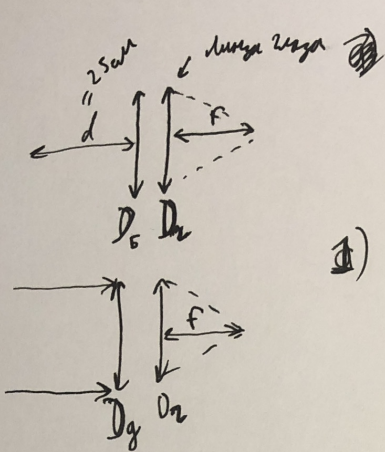 25см
линза глаза
"
d
F
D₅ Dг
1)
F
Dg Dг